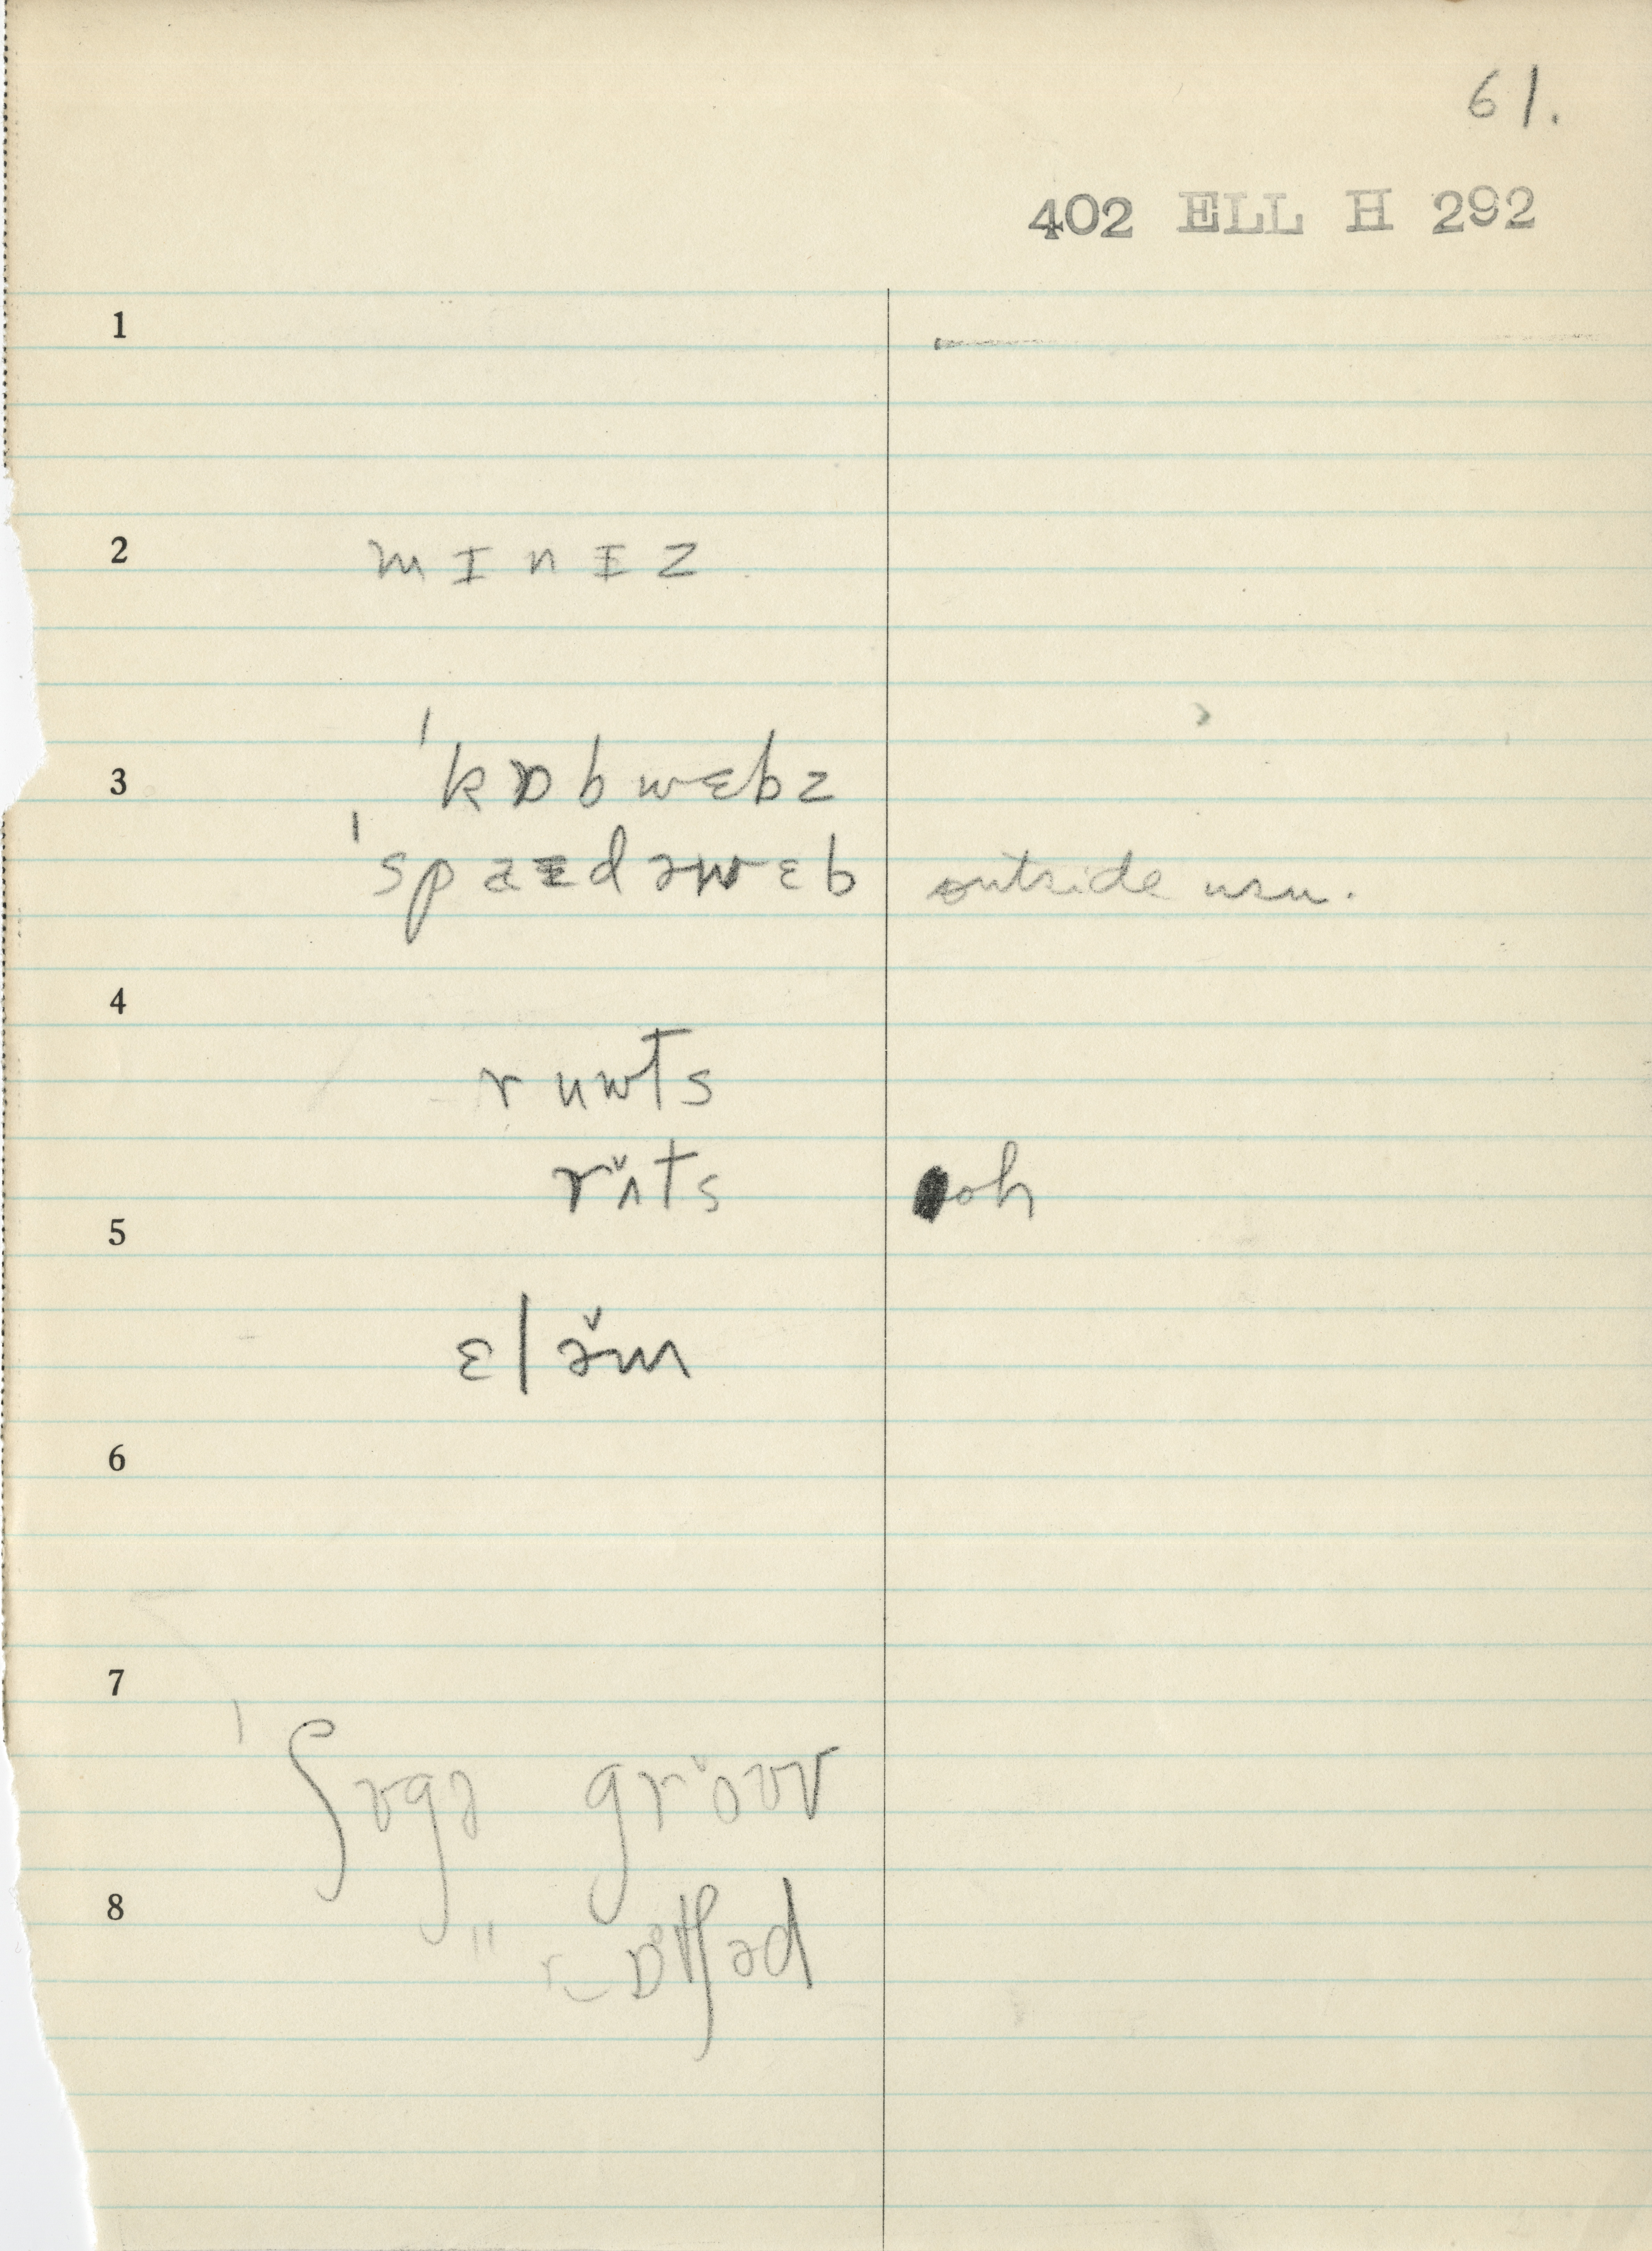 61.
402 ELL H 292
1
2 mɪnɪz
3 ˈkɒbwɛbz
ˈspaɪdəwɛb outside usu.
4
ruwts
rʌ̌ts oh
5
ɛlə̌m
6
7
ˈʃʊgə grǒʊv
8
" ɒtʃəd